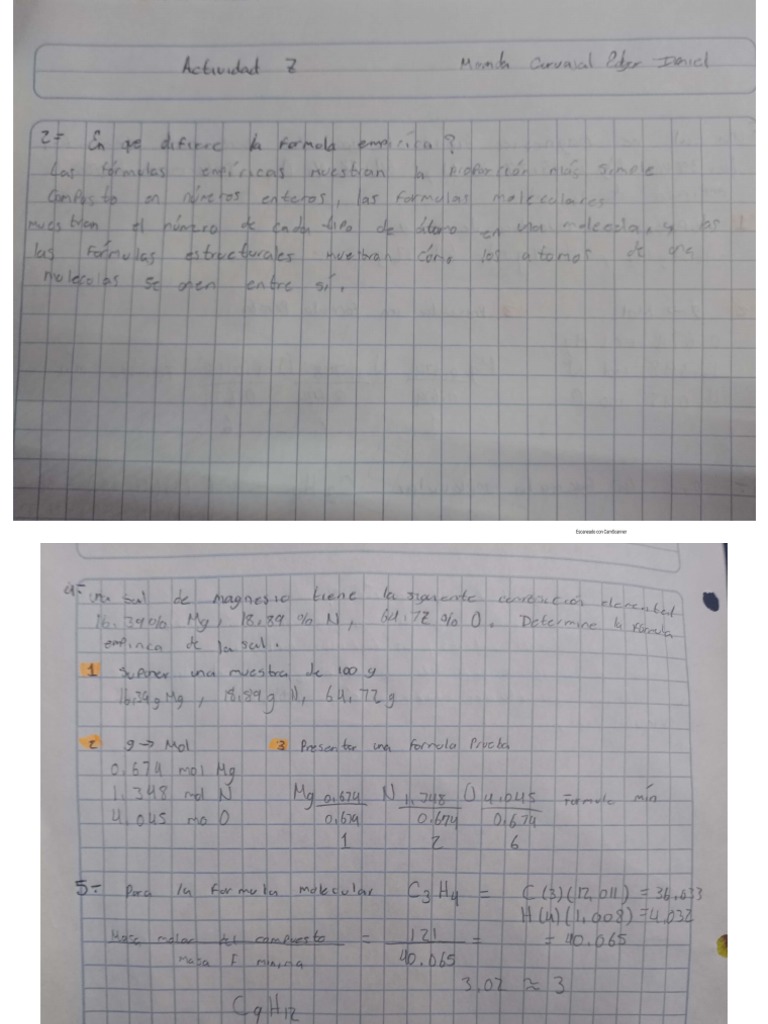 Actividad 2
2= En que difiere la formula empírica?
Las fórmulas empíricas muestran la proporción más simple
en números enteros, las formulas moleculares
muestran el número de cada tipo de átomo en una molecula, y las
las fórmulas estructurales muestran cómo los atomos de una
moleculas se unen entre sí.
Escaneado con CamScanner
4= una sal de magnesio tiene la siguiente elemental
16.39% Mg, 18.89% N, 64.72% O. Determine la fórmula
empirica de la sal.
1 Suponer una muestra de 100 g
16,39g Mg, 18,89g N, 64,72g
2 g → Mol
3 Presentar una formula Prueba
0.674 mol Mg
1.348 mol N
4.045 mo O
Mg 0.674 N 1.348 O 4.045 Formula mín
0.674 0.674 0.674
1 2 6
5= Para la formula molecular C3H4 = C(3)(12,011) = 36.033
H(4)(1,008)=4.032
= 40.065
Masa molar del compuesto = 121 =
masa F minima 40.065
3.02 ≈ 3
C9H12